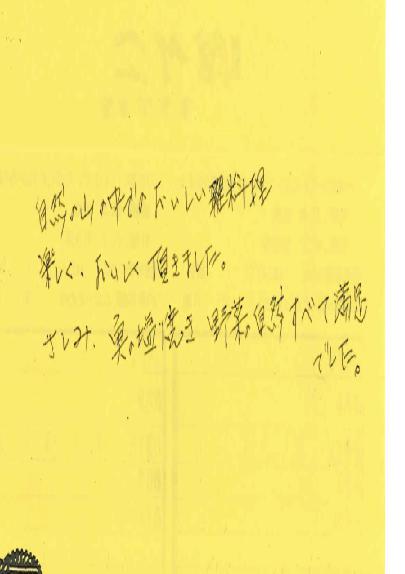 自然の山の中でのおいしい雞料理
楽しく、おいしく頂きました。
さしみ、臭の塩焼き 野菜の自然すべて満足
でした。